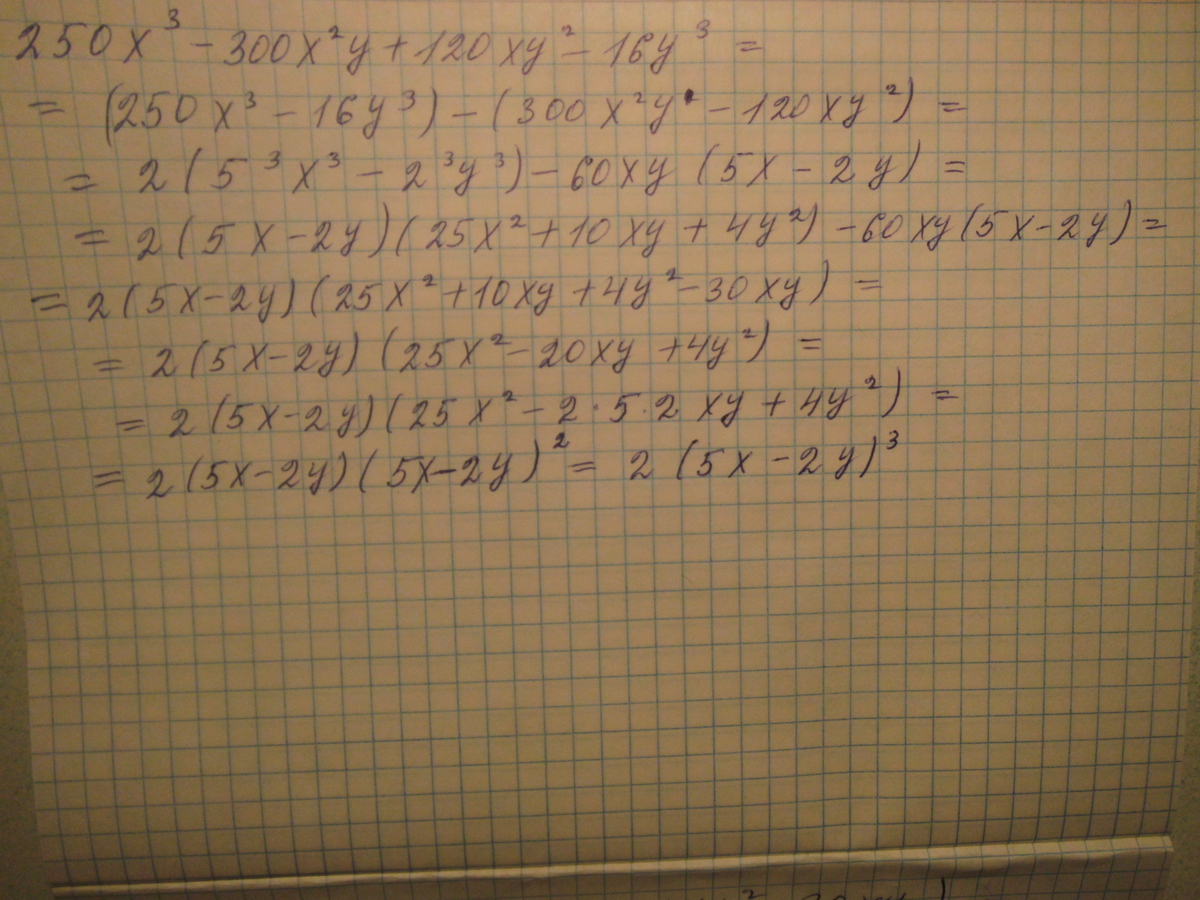 250x³ - 300x²y + 120xy² - 16y³ =
= (250x³ - 16y³) - (300x²y - 120xy²) =
= 2(5³x³ - 2³y³) - 60xy(5x - 2y) =
= 2(5x - 2y)(25x² + 10xy + 4y²) - 60xy(5x - 2y) =
= 2(5x - 2y)(25x² + 10xy + 4y² - 30xy) =
= 2(5x - 2y)(25x² - 20xy + 4y²) =
= 2(5x - 2y)(25x² - 2·5·2xy + 4y²) =
= 2(5x - 2y)(5x - 2y)² = 2(5x - 2y)³